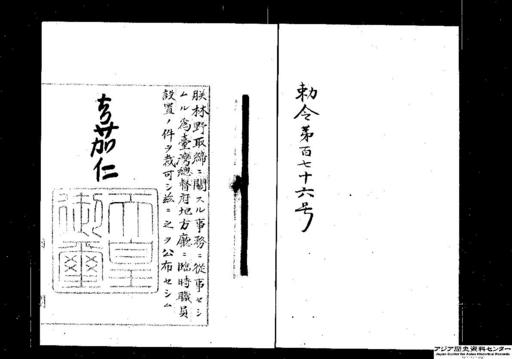 勅令第百七十六号
朕林野取締ニ關スル事務ニ從事セシ
ムル爲臺灣總督府地方廳ニ臨時職員
設置ノ件ヲ裁可シ茲ニ之ヲ公布セシム
嘉仁
天皇
御璽
アジア歴史資料センター
Japan Center for Asian Historical Records